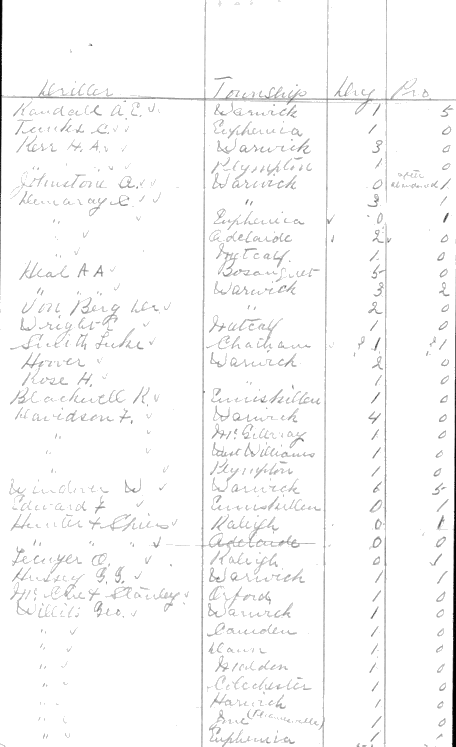 Driller Township Dry Pro.
Randall A.E. Warwick 1 5
Tunks C. Euphemia 1 0
Kerr H.A. Warwick 3 0
" " " Plympton 1 0
Johnstone A. Warwick 0 after 1
Demaray C. " 3 1
" Euphemia 0 1
" Adelaide 2 0
Metcalf. 1 0
Heal A A Bosanquet 5 0
" " " Warwick 3 2
Von Berg " 2 0
Wright Metcalf 1 0
Smith Luke Chatham 1 1
Hoover Warwick 2 0
Rose H. " 1 0
Blackwell R. Enniskillen 1 0
Davidson F. Warwick 4 0
" McGillvray 1 0
West Williams 1 0
" Plympton 1 0
Windover W Warwick 6 5
Edward F Enniskillen 0 1
Hunter + Shiers Raleigh 0 1
" " " Adelaide 0 0
Lecuyer O. Raleigh 0 1
Hussey G.G. Warwick 1 1
Mc Clue + Stanley Orford 1 0
Willits Geo. Warwick 1 0
" Camden 1 0
" Dawn 1 0
" Malden 1 0
" Colchester 1 0
" Harwich 1 0
" 1 0
" Euphemia 1 0